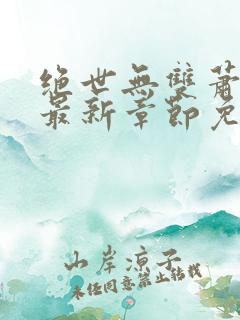 絕世無雙蕭
最新章節免
山岸涼子
未经同意禁止转载